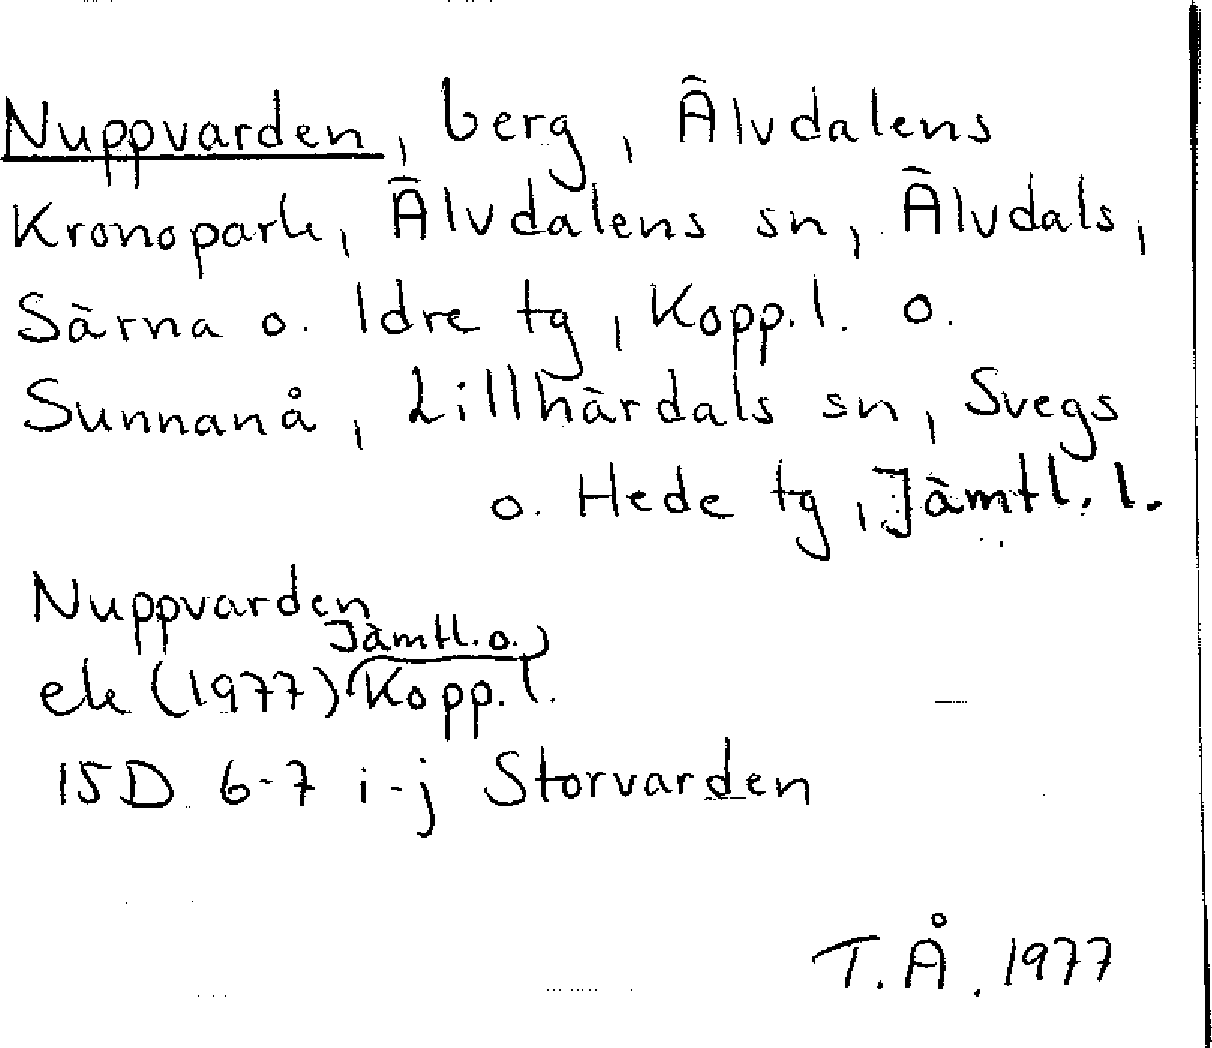 Nuppvarden, berg, Älvdalens
Kronopark, Älvdalens sn, Älvdals,
Särna o. Idre tg, Kopp.l. o.
Sunnanå, Lillhärdals sn, Svegs
o. Hede tg, Jämtl.l.
Nuppvarden
Jämtl.o.
ek (1977) Kopp.l.
15D 6-7 i-j Storvarden
T.Å. 1977